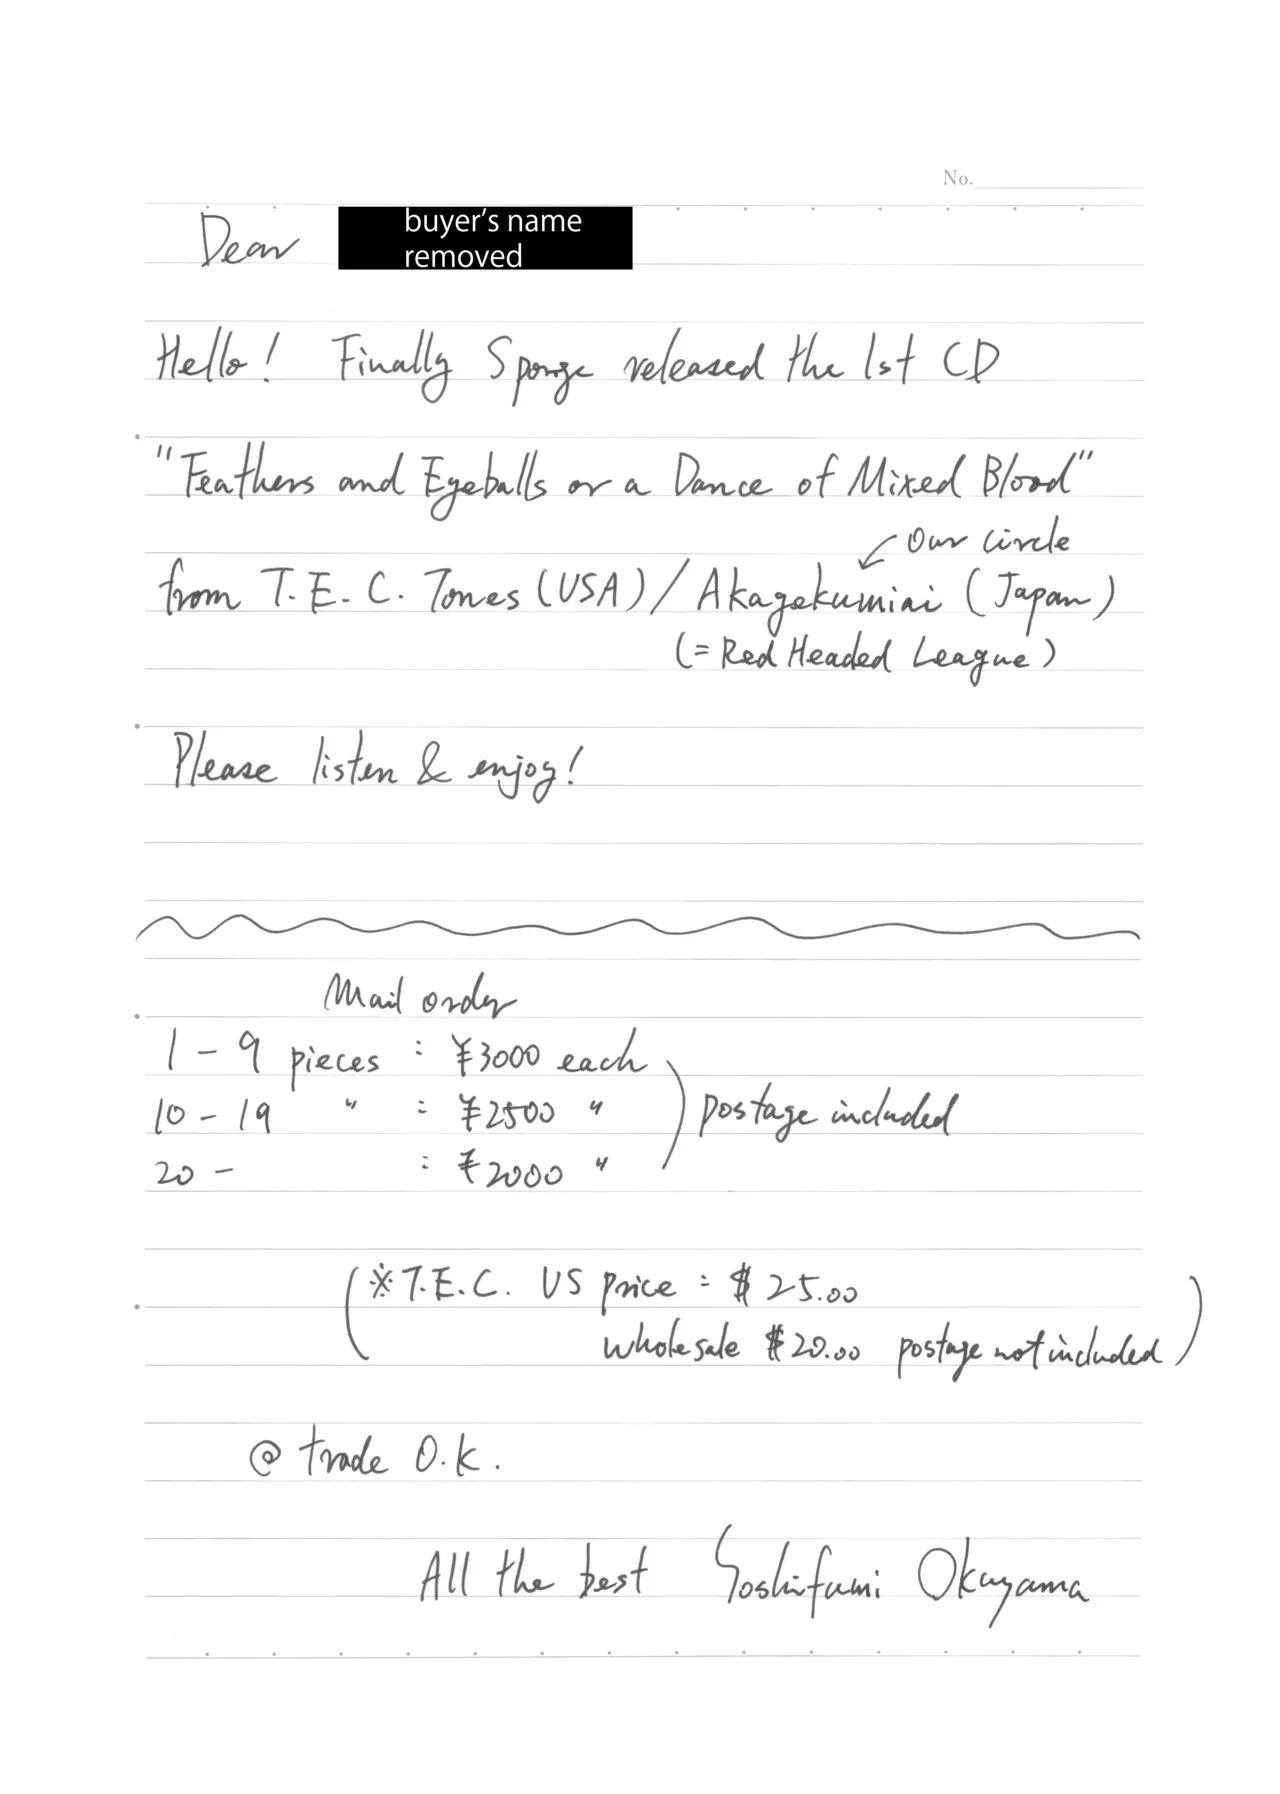 No.
Dear buyer's name removed
Hello! Finally Sponge released the 1st CD
"Feathers and Eyeballs or a Dance of Mixed Blood"
our circle
from T.E.C. Tones (USA) / Akagekumiai (Japan)
(= Red Headed League)
Please listen & enjoy!
Mail order
1 - 9 pieces : ¥3000 each
10 - 19 〃 : ¥2500 〃
20 - : ¥2000 〃
postage included
(※T.E.C. US price : $25.00
wholesale $20.00 postage not included)
@ trade O.K.
All the best Yoshifumi Okayama